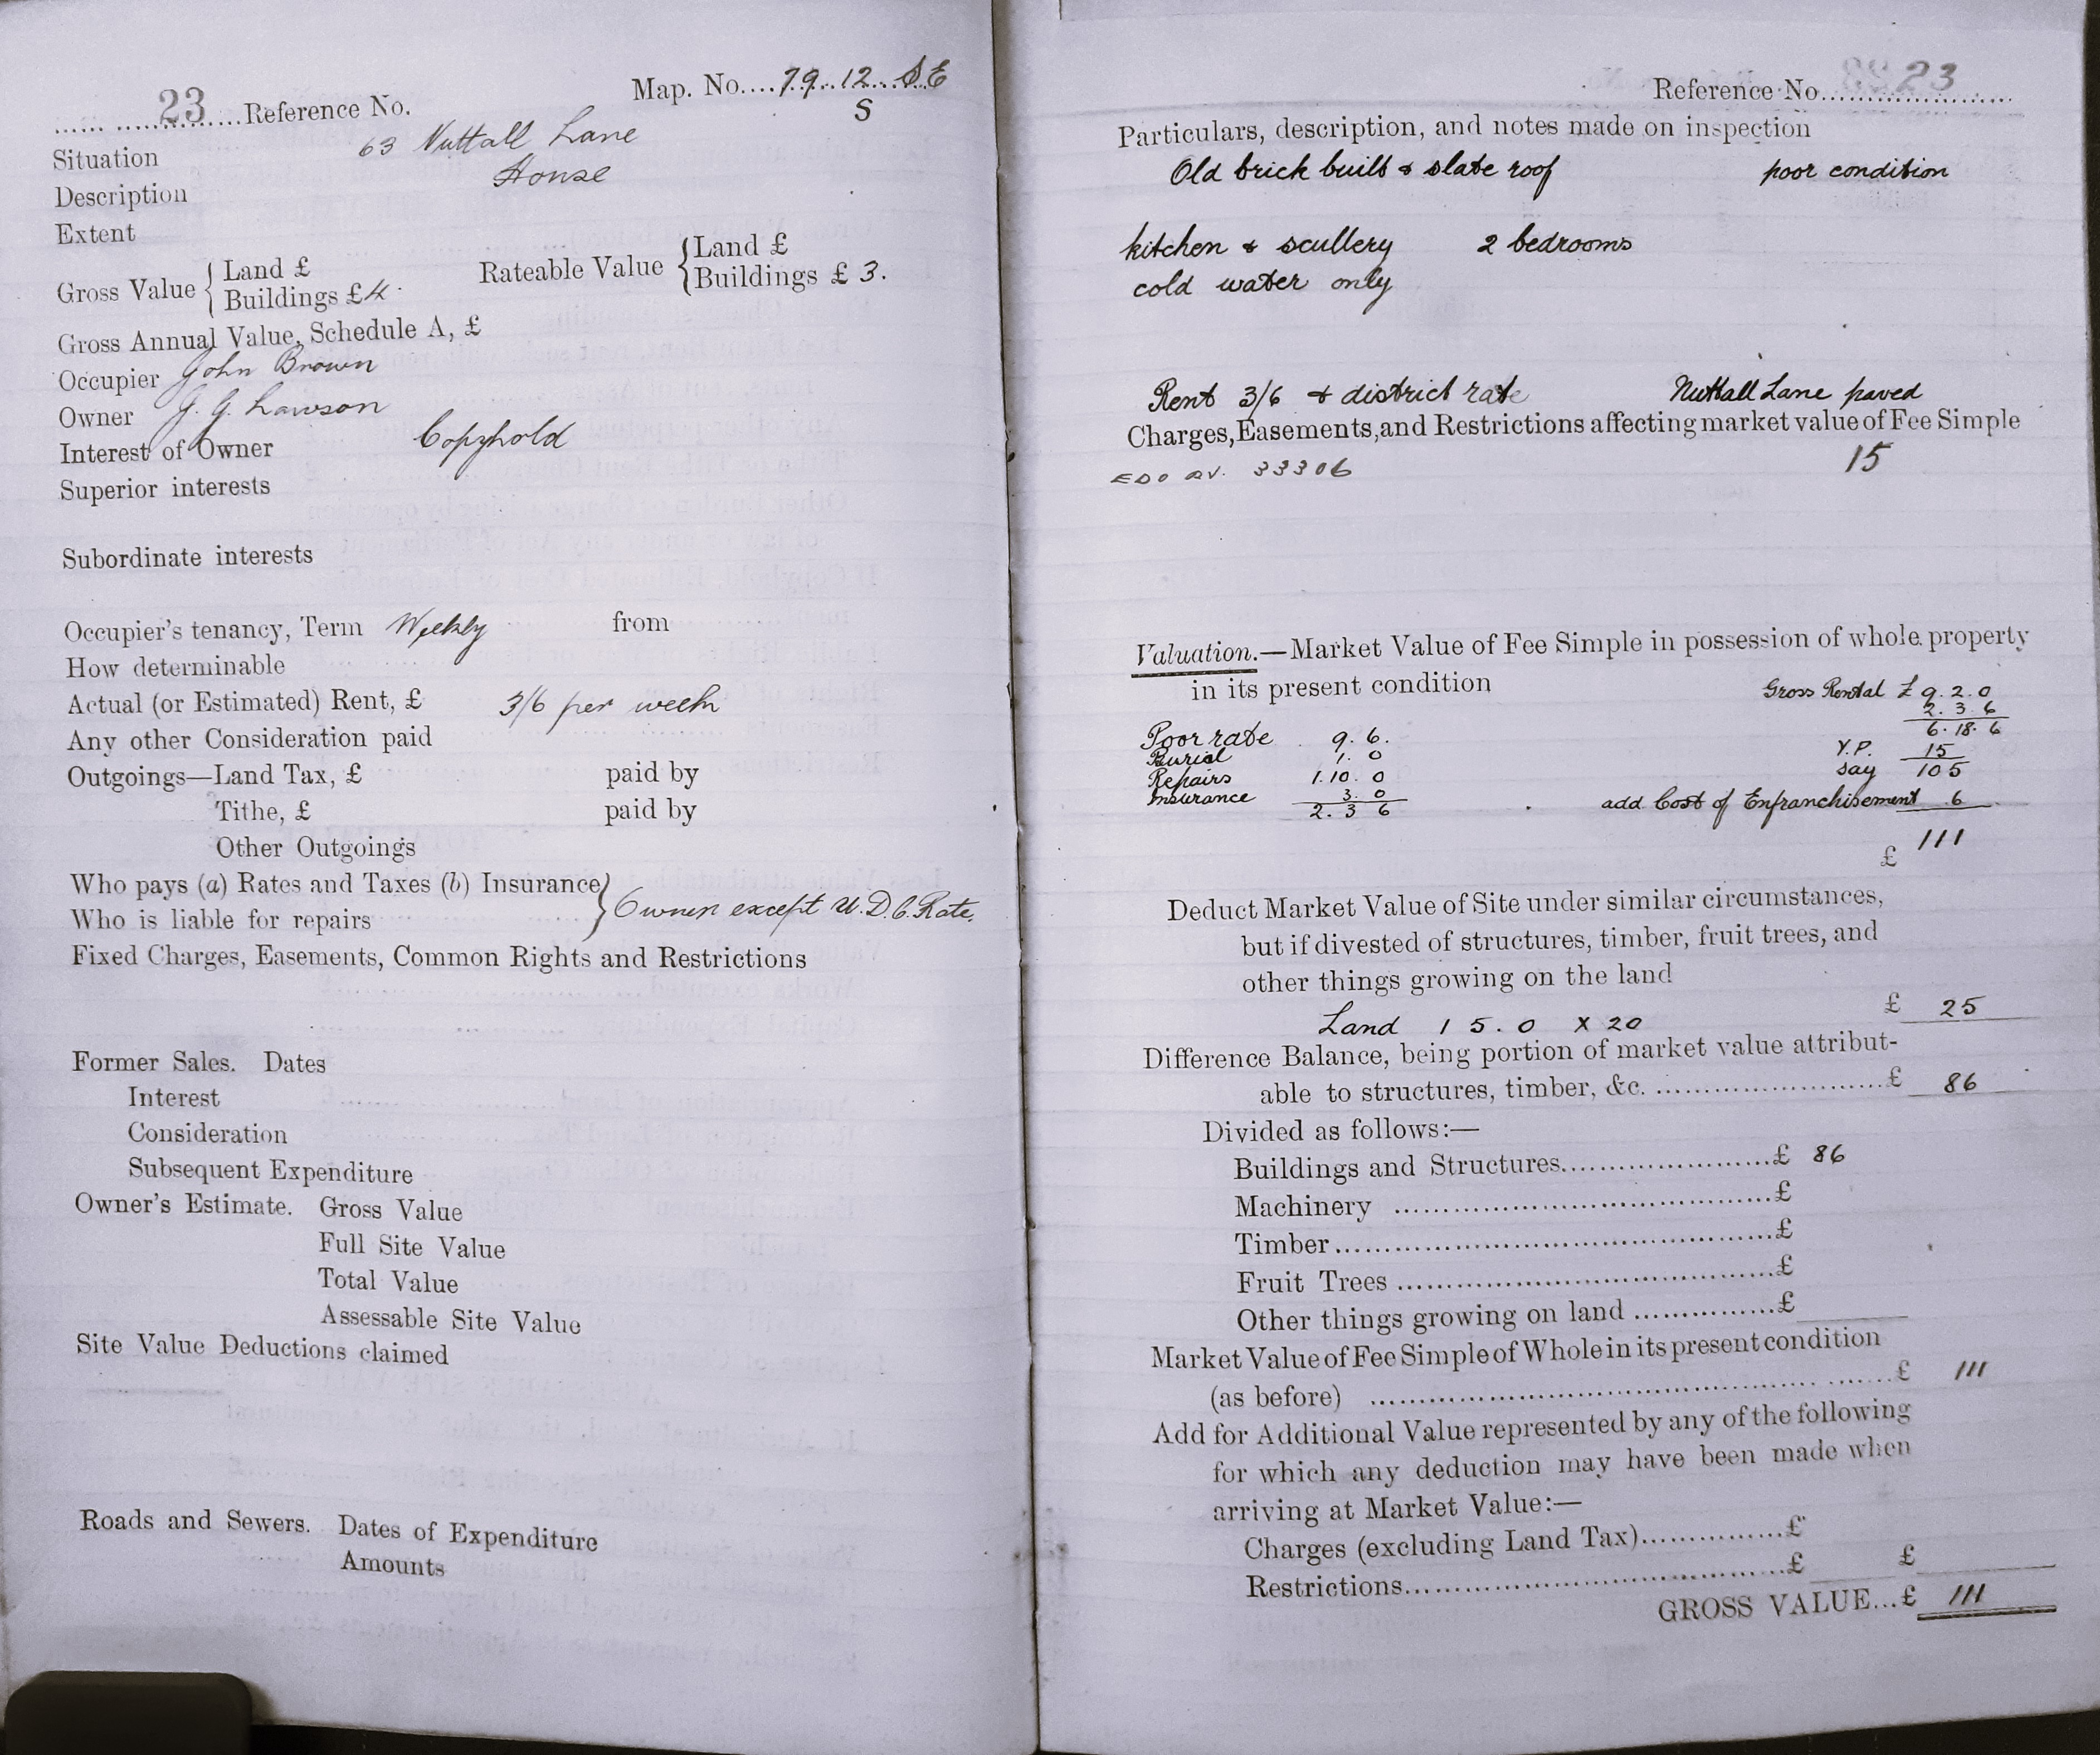 23 Reference No.
Map. No.... 79. 12. S.E
S
Situation 63 Nuttall Lane
Description House
Extent
Gross Value { Land £
Buildings £ 4.
Rateable Value { Land £
Buildings £ 3.
Gross Annual Value, Schedule A, £
Occupier John Brown
Owner J. G. Lawson
Interest of Owner Copyhold
Superior interests
Subordinate interests
Occupier's tenancy, Term Weekly from
How determinable
Actual (or Estimated) Rent, £ 3/6 per week
Any other Consideration paid
Outgoings—Land Tax, £ paid by
Tithe, £ paid by
Other Outgoings
Who pays (a) Rates and Taxes (b) Insurance }
Who is liable for repairs } Owner except U.D.C. Rate.
Fixed Charges, Easements, Common Rights and Restrictions
Former Sales. Dates
Interest
Consideration
Subsequent Expenditure
Owner's Estimate. Gross Value
Full Site Value
Total Value
Assessable Site Value
Site Value Deductions claimed
Roads and Sewers. Dates of Expenditure
Amounts
Reference No. 23
Particulars, description, and notes made on inspection
Old brick built & slate roof poor condition
kitchen & scullery 2 bedrooms
cold water only
Rent 3/6 & district rate Nuttall Lane paved
Charges, Easements, and Restrictions affecting market value of Fee Simple
33306 15
Valuation.—Market Value of Fee Simple in possession of whole property
in its present condition
Gross Rental £ 9. 2. 0
2. 3. 6
6. 18. 6
Y.P. 15
say 105
add Cost of Enfranchisement 6
Poor rate 9. 6.
Burial 1. 0
Repairs 1. 10. 0
Insurance 3. 0
2. 3 6
£ 111
Deduct Market Value of Site under similar circumstances,
but if divested of structures, timber, fruit trees, and
other things growing on the land
Land 1 5. 0 x 20 £ 25
Difference Balance, being portion of market value attribut-
able to structures, timber, &c. £ 86
Divided as follows:—
Buildings and Structures £ 86
Machinery £
Timber £
Fruit Trees £
Other things growing on land £
Market Value of Fee Simple of Whole in its present condition
(as before) £ 111
Add for Additional Value represented by any of the following
for which any deduction may have been made when
arriving at Market Value:—
Charges (excluding Land Tax) £
Restrictions £ £
GROSS VALUE...£ 111